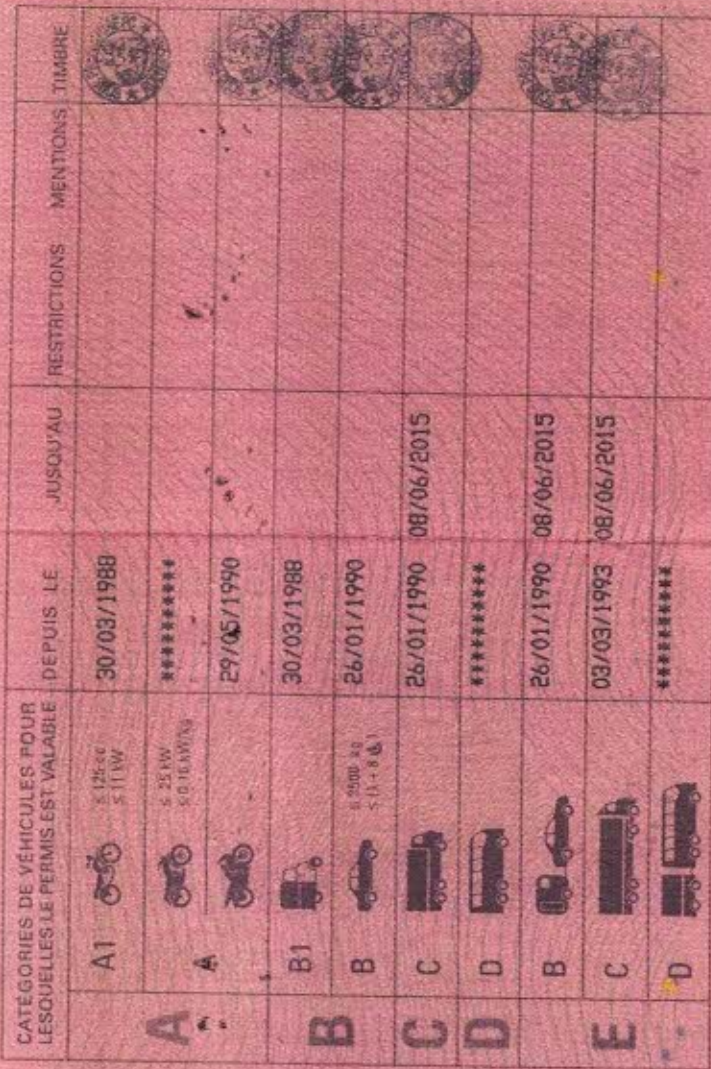 CATÉGORIES DE VÉHICULES POUR
LESQUELLES LE PERMIS EST VALABLE
DEPUIS LE
JUSQU'AU
RESTRICTIONS
MENTIONS
TIMBRE
A
A1
≤ 125 cc
≤ 11 kW
30/03/1988
A
≤ 25 kW
≤ 0.16 kW/kg
**********
29/05/1990
B
B1
30/03/1988
B
≤ 3500 kg
≤ (1 + 8)
26/01/1990
C
C
26/01/1990 08/06/2015
D
D
**********
E
B
26/01/1990 08/06/2015
C
03/03/1993 08/06/2015
D
**********